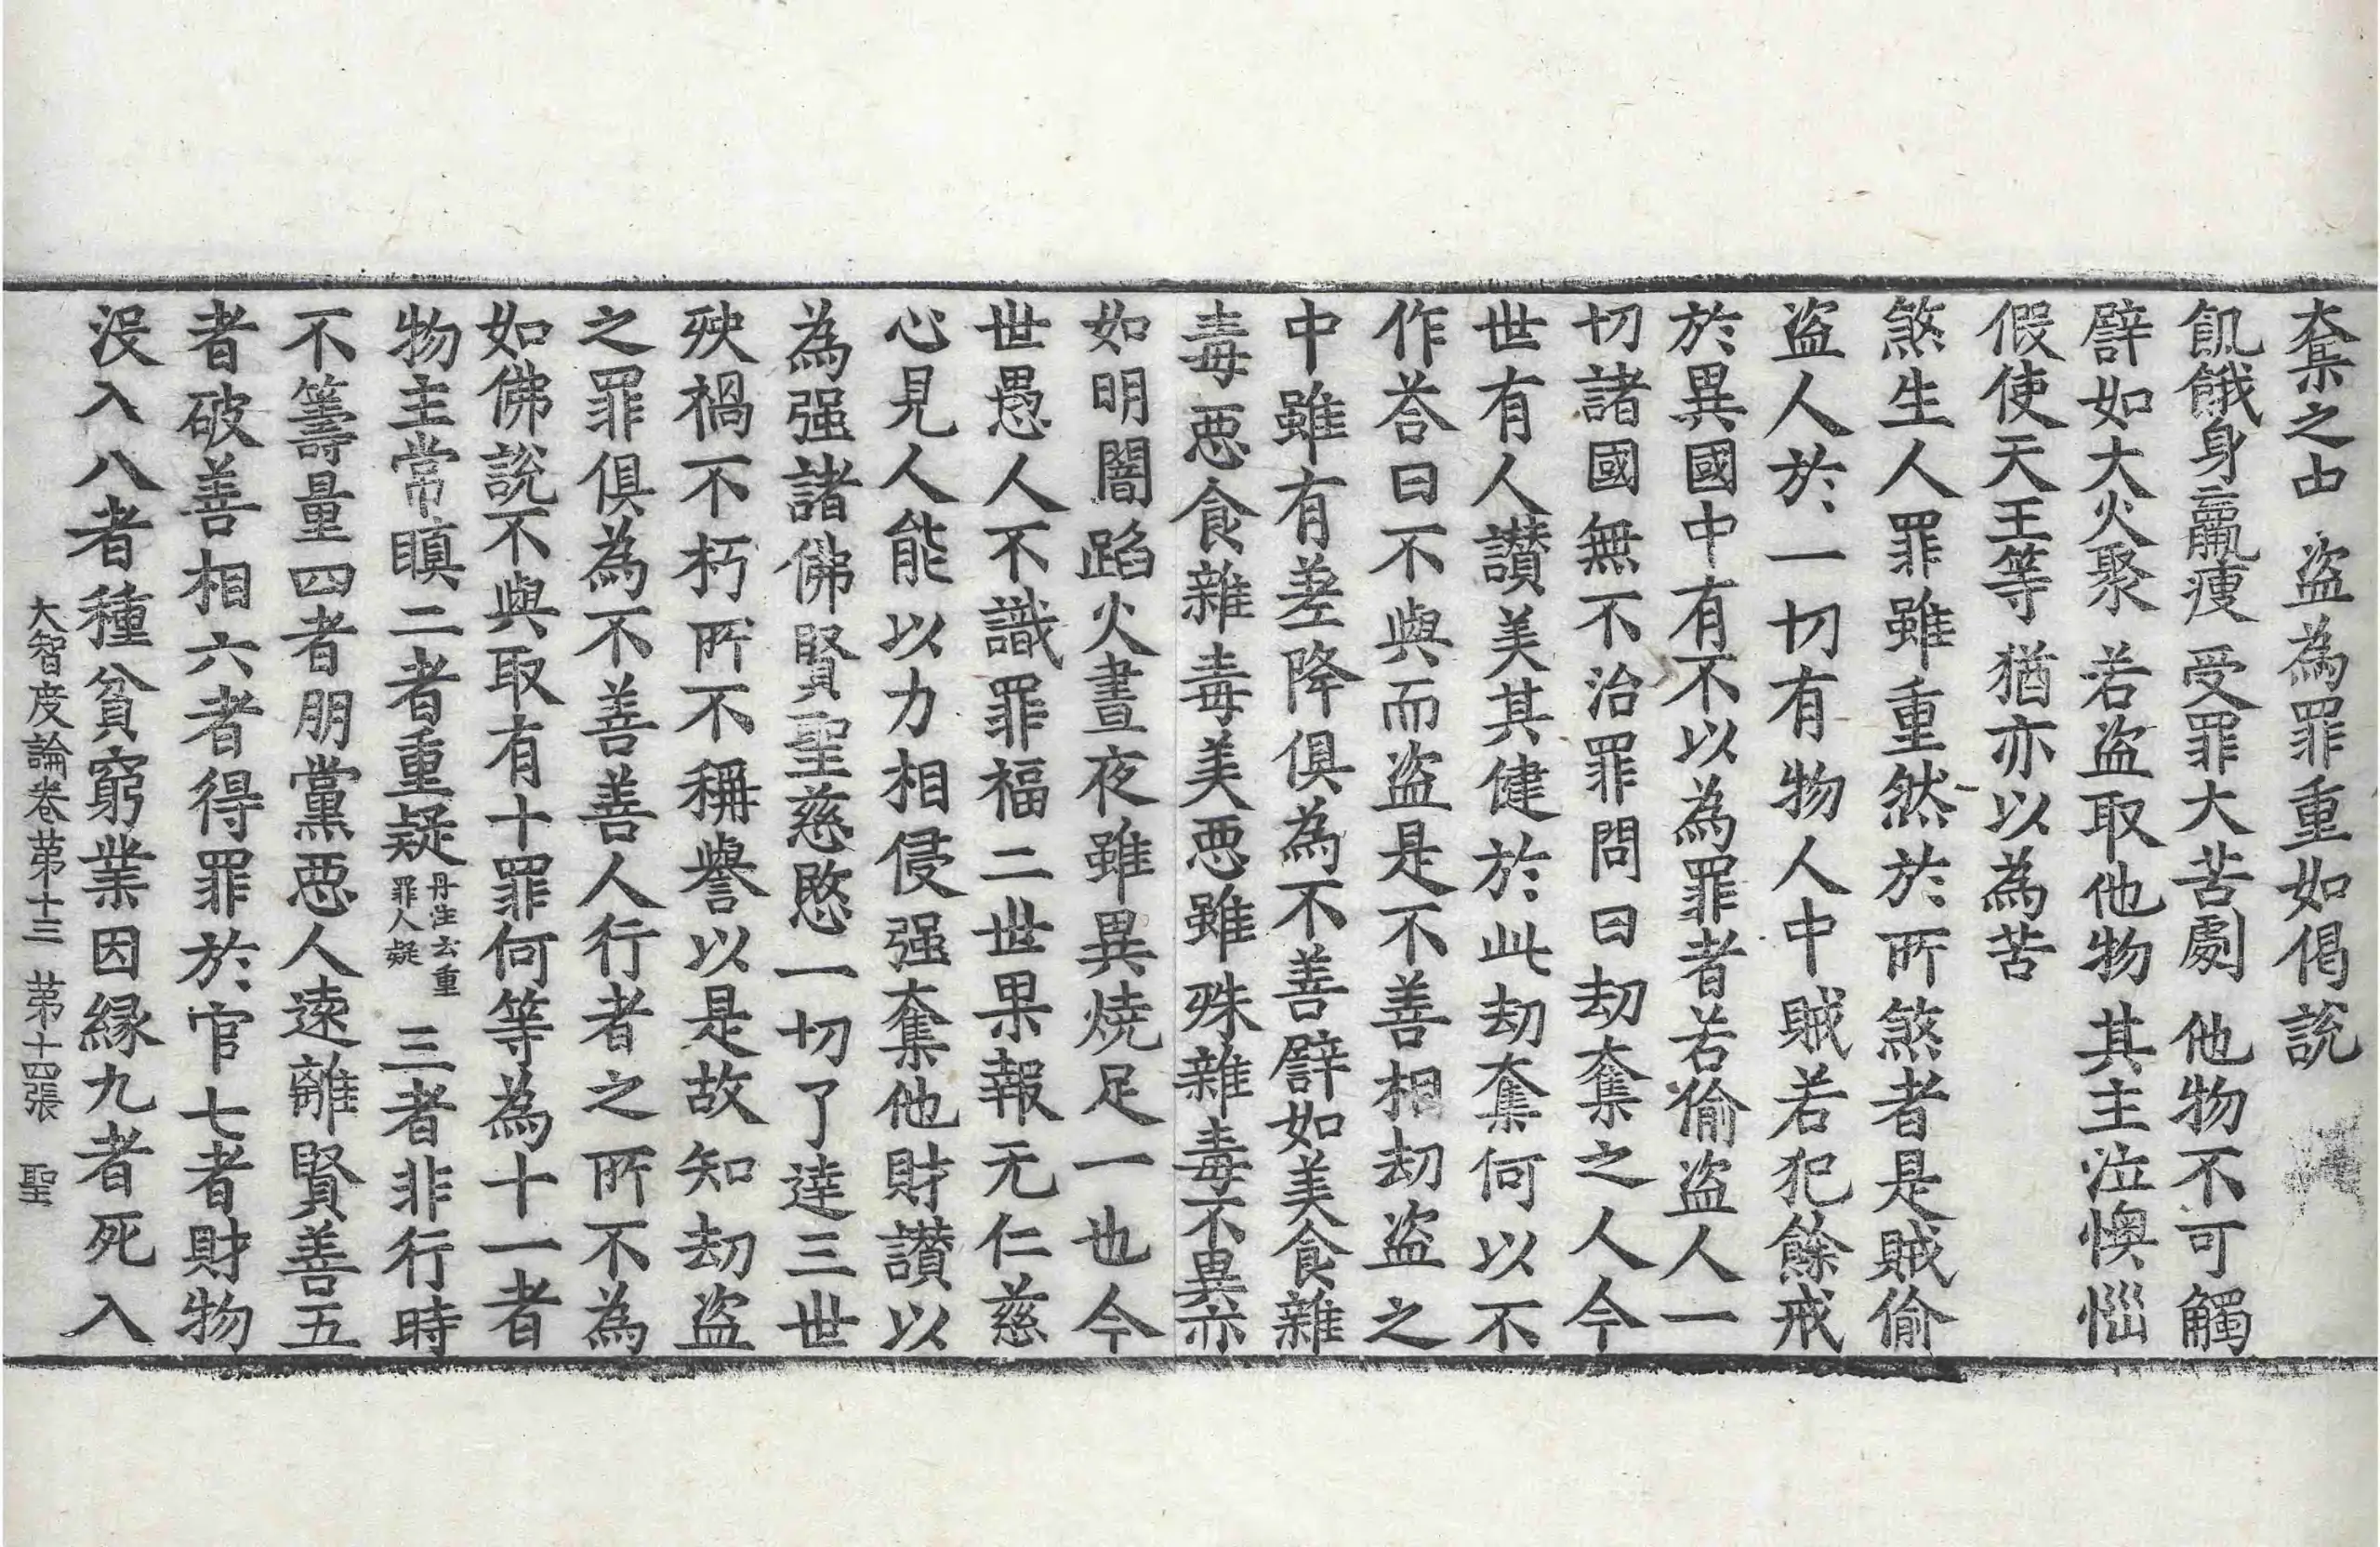 奪之由 盜為罪重如偈說
飢餓身羸瘦 受罪大苦劇 他物不可觸
譬如大火聚 若盜取他物 其主泣懊惱
假使天王等 猶亦以為苦
煞生人罪雖重然於所煞者是賊偷
盜人於一切有物人中賊若犯餘戒
於異國中有不以為罪者若偷盜人一
切諸國無不治罪問曰劫奪之人今
世有人讚美其健於此劫奪何以不
作荅曰不與而盜是不善相劫盜之
中雖有差降俱為不善譬如美食雜
毒惡食雜毒美惡雖殊雜毒不異亦
如明闇蹈火晝夜雖異燒足一也今
世愚人不識罪福二世果報无仁慈
心見人能以力相侵强奪他財讚以
為强諸佛賢聖慈愍一切了達三世
殃禍不朽所不稱譽以是故知劫盜
之罪俱為不善善人行者之所不為
如佛說不與取有十罪何等為十一者
物主常瞋二者重疑丹注云重罪人疑三者非行時
不籌量四者朋黨惡人遠離賢善五
者破善相六者得罪於官七者財物
沒入八者種貧窮業因緣九者死入
大智度論卷第十三 第十四張 聖